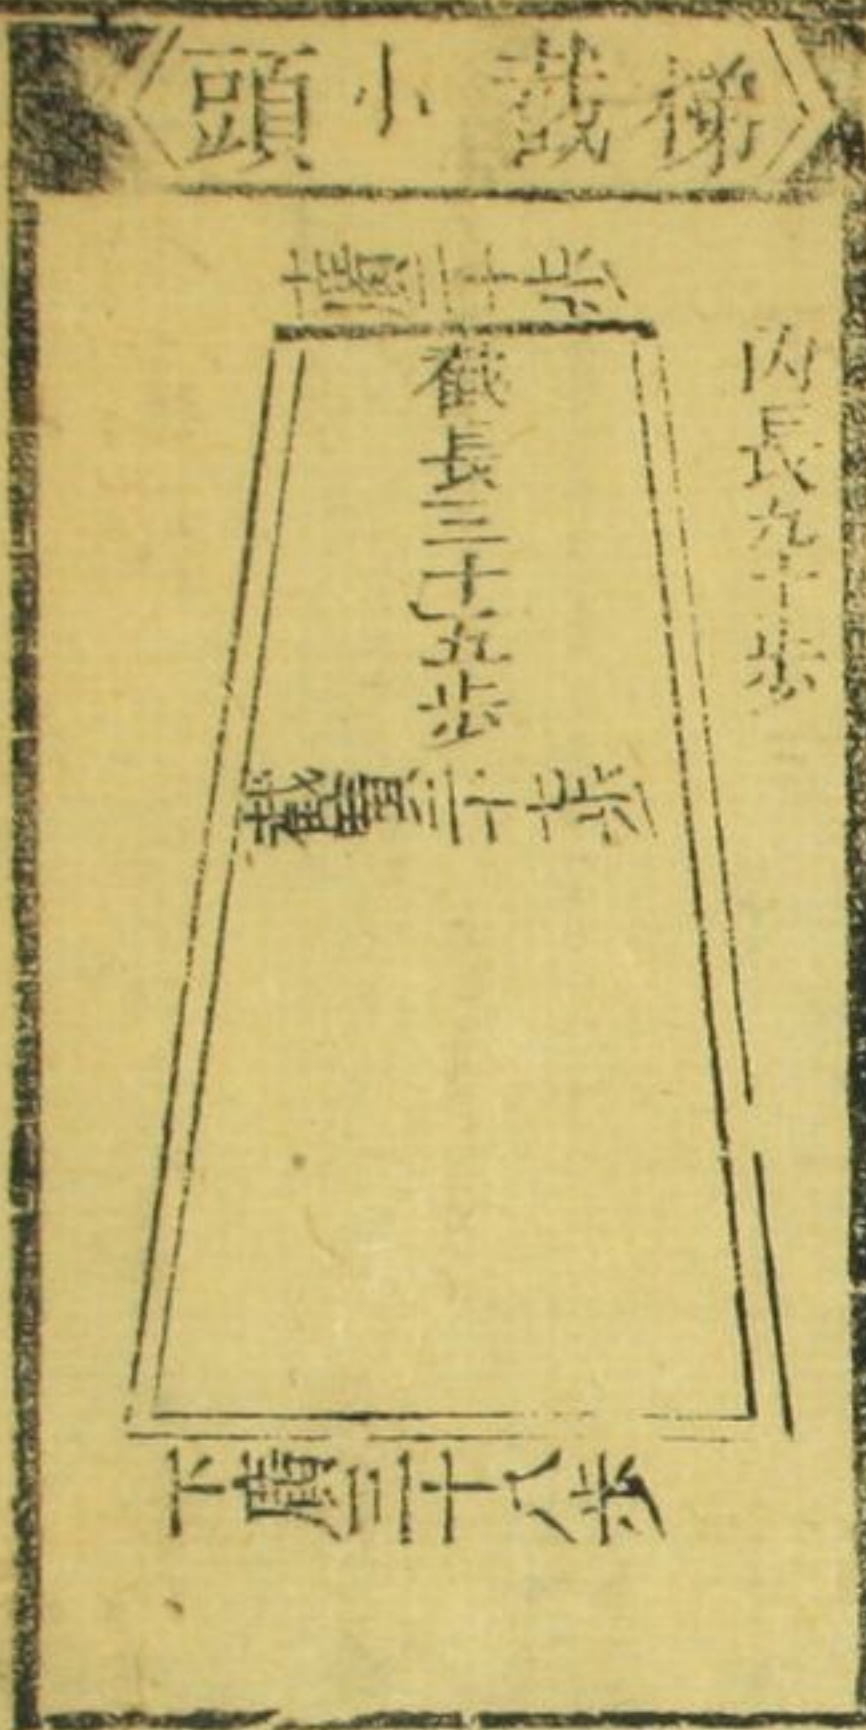 梯截小頭
上廣二十步
內長九十步
截長三十五步
截廣二十七步
下廣三十八步